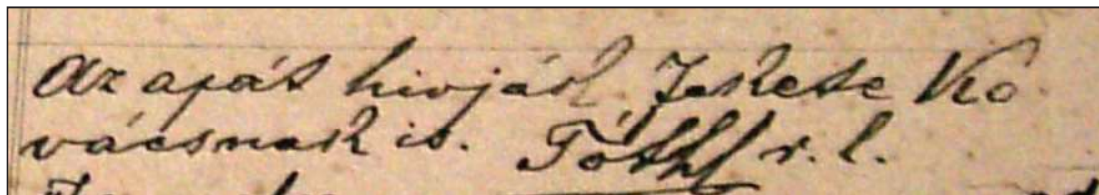 Az apát hivják Fekete Ko
vácsnak is. Tóth r. l.